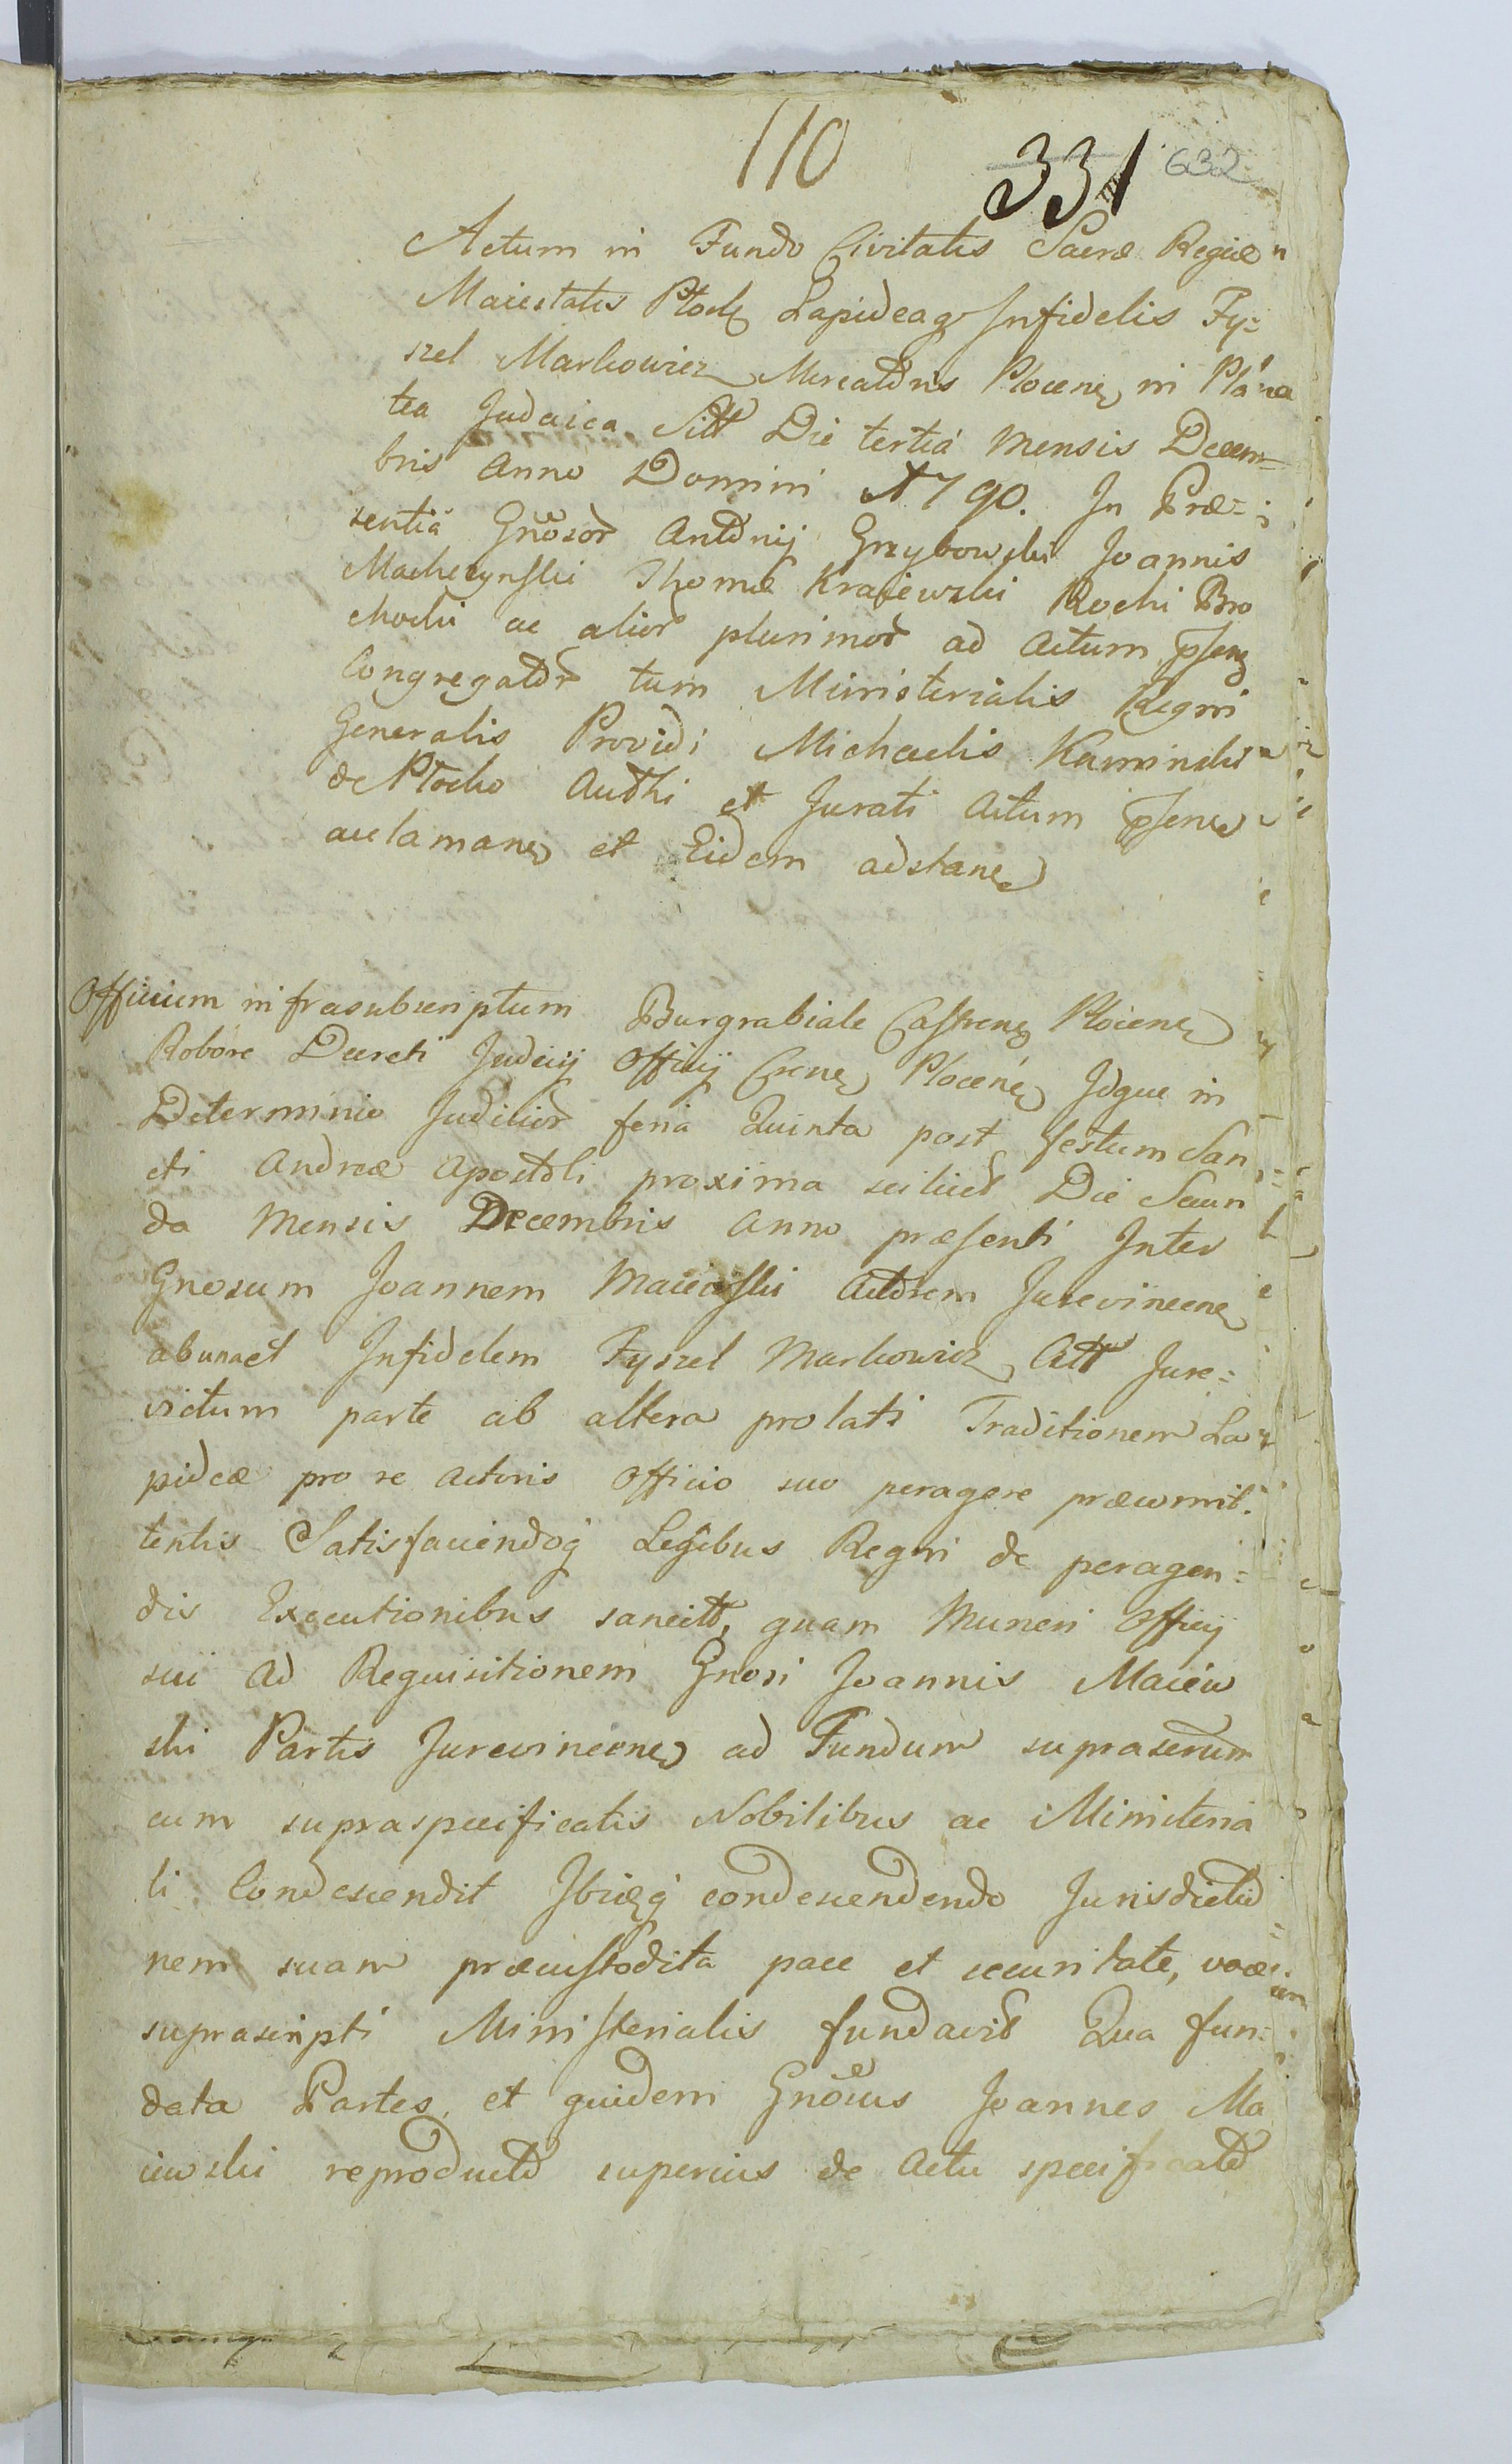 110 331 632
Actum in Fundo Civitatis Sacræ Regiæ
Maiestatis Płock Lapideaq Infidelis Fy=
szel Markowicz Mercatoris Plocen in Pla
tea Judaica Sitt Die tertiá Mensis Decem=
bris Anno Domini 1790. In Præ=
sentiá Gnosor Antonij Grzybowski Joannis
Machczynski Thomæ Kraiewski Rochi Bro
chocki ac alior plurimor ad Actum psens
Congregator tum Ministerialis Regni
Generalis Providi Michaelis Kaminski
de Płocko Authi et Jurati Actum psens
acclamans et Eidem adstans
Officium infrasubscriptum Burgrabiale Castrens Plocens
Robore Decreti Judicij Officij Crens Plocens Idque in
Determinio Judicior feria Quinta post festum San
cti Andreæ Apostoli proxima scilicet Die Secun
da Mensis Decembris Anno præsenti Inter
Gnosum Joannem Maiewski Actorem Jurevincens
abunaet Infidelem Fyszel Markowicz Citt Jure=
victum parte ab altera prolati Traditionem La
pideæ pro re Actoris Officio suo peragere præcommit=
tentis Satisfaciendoq Legibus Regni de peragen=
dis Executionibus sancitt, quam Muneri Officij
sui Ad Requisitionem Gnosi Joannis Maiew
ski Partis Jurevincens ad Fundum suprascrum
cum supraspecificatis Nobilibus ac Ministeria
li Condescendit Ibiq condescendendo Jurisdictio
nem suam præcustodita pace et securitate, voce
suprascripti Ministerialis fundavit Qua fun=
data Partes, et quidem Gnosus Joannes Ma
iewski reproducto superius de Actu specificato